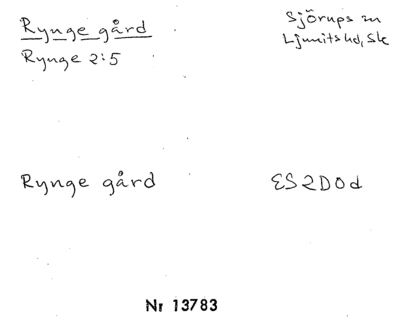 Rynge gård
Rynge 2:5
Sjörups sn
Ljunits hd, Sk
Rynge gård
ES2D0d
Nr 13783